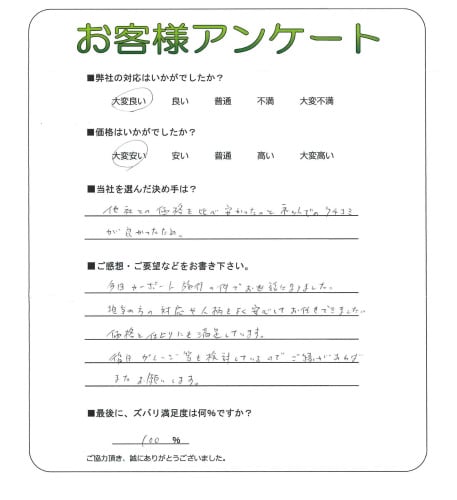 お客様アンケート
■弊社の対応はいかがでしたか？
大変良い 良い 普通 不満 大変不満
■価格はいかがでしたか？
大変安い 安い 普通 高い 大変高い
■当社を選んだ決め手は？
他社との価格を比べ安かったのと ネットでの クチコミ
が良かったため。
■ご感想・ご要望などをお書き下さい。
今日カーポート の件でお世話になりました。
担当の方の対応や人柄もよく安心してお任せできました。
価格と仕上りにも満足しています。
後日 ガレージ 等も検討しているので ご縁があれば
またお願いします。
■最後に、ズバリ満足度は何%ですか？
100 %
ご協力頂き、誠にありがとうございました。